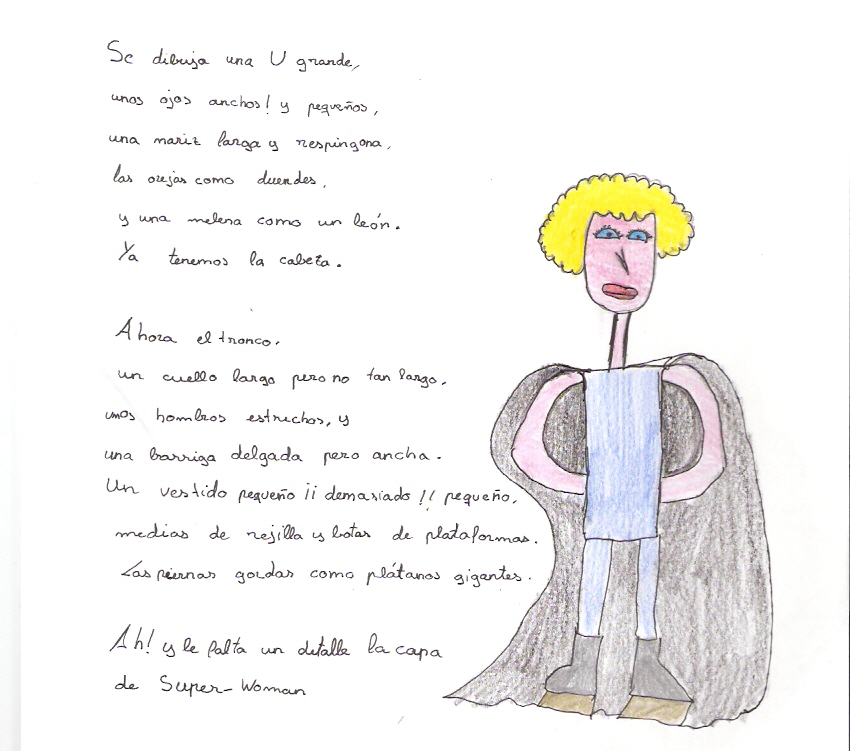 Se dibuja una U grande,
unos ojos anchos! y pequeños,
una nariz larga y respingona,
las orejas como duendes,
y una melena como un león.
Ya tenemos la cabeza.
Ahora el tronco.
un cuello largo pero no tan largo,
unos hombros estrechos, y
una barriga delgada pero ancha.
Un vestido pequeño ¡¡ demasiado !! pequeño,
medias de rejilla y botas de plataformas.
Las piernas gordas como plátanos gigantes.
Ah! y le falta un detalle la capa
de Super-Woman